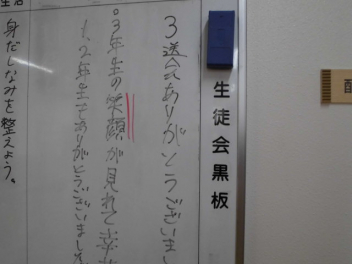 生徒会黒板
3送会ありがとうございまし
3年生の笑顔が見れて
1、2年生もありがとうございました
身だしなみを整えよう。